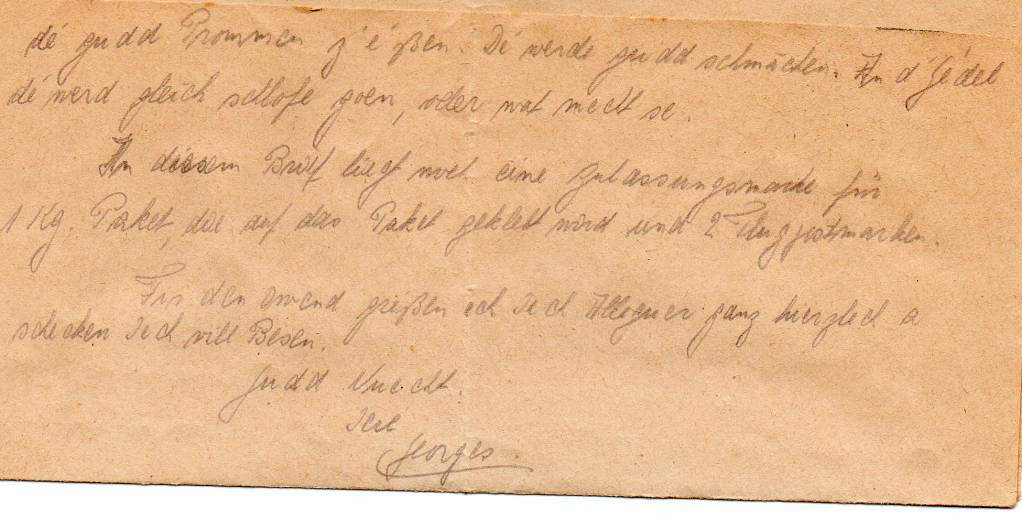 dé gudd Prommen z'eßen. Dé werde gudd schmächen. An d'Jédel
dé werd gleich schlofe goen, oder wat mecht se.
An diesem Brief lieft noch eine Zulassungsmarke für
1 Kg. Paket, die auf das Paket geklebt wird und 2 Flugpostmarken.
Fir den owend greißen ech Iech Alleguer ganz hierzlech a
schecken Iech vill Besen.
Gudd Nuecht.
Iere
Georges.